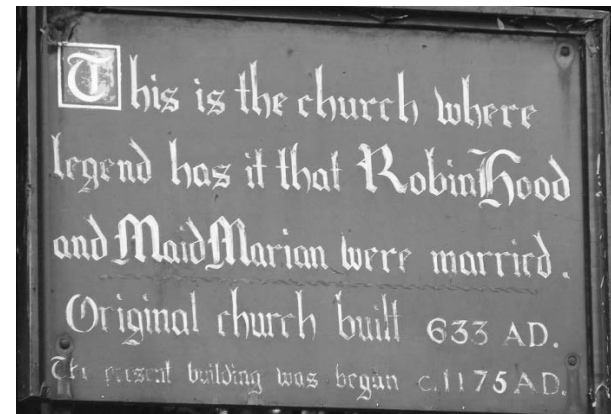 This is the church where
legend has it that Robin Hood
and Maid Marian were married.
Original church built 633 AD.
The present building was began c.1175 AD.